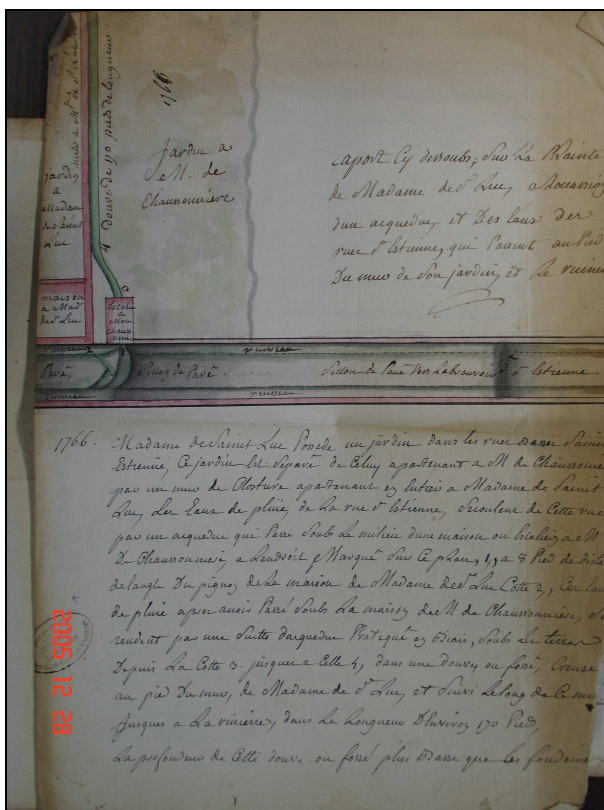 1766
4 Douve de 170 pieds de longueur
jardin a
M. de
Chaussonnière
jardin
a
Madam
de Saint
Luc
maison
a Mad
de St Luc
raport Cy dessoubs, Sur La Plainte
de Madame de St Luc, a
dun acqueduc, et Des Eaux der
rues St Estienne, qui Passent au Pied
Du mur de Son jardin, et Le ruinen
ruisseau
ruisseau
Pavé
Sillon de Pavé
Sillon de Pavé Vers
St Estienne
ruisseau
ruisseau
1766. Madame de Saint Luc Possede un jardin dans les rues Basse Saint
Estienne, Ce jardin Est Separé de Celuy apartenant a M de Chaussonn
par un mur de Cloture apartenant en Entier a Madame de Saint
Luc, Les Eaux de pluie, de La rue St Estienne, Secoulent de Cette rue
par un acqueduc qui Passe Soubs Le milieu dune maison ou a M
De Chaussonniere, a Lendroit Marqué Sur Ce plan, 1, a 8 Pied de dista
de langle Du pignon de La maison de Madame de St Luc Cotte 2, Ces Eau
de pluie apres avoir Passé Soubs La maison de M de Chaussonniere, Se
rendent par une Suitte dacqueduc Pratiqué en Biais, Soubs Le terrein
Depuis La Cotte 3. jusques a Celle 4, dans une Douve, ou fossé, Creusé
au pied Du mur, de Madame de St Luc, et Suivi Le long de Ce mur
Jusques a La riviere, dans La Longueur D'Environ 170 Pieds,
La profondeur de Cette douve ou fossé plus Basse que les fondeme
2005 12 28